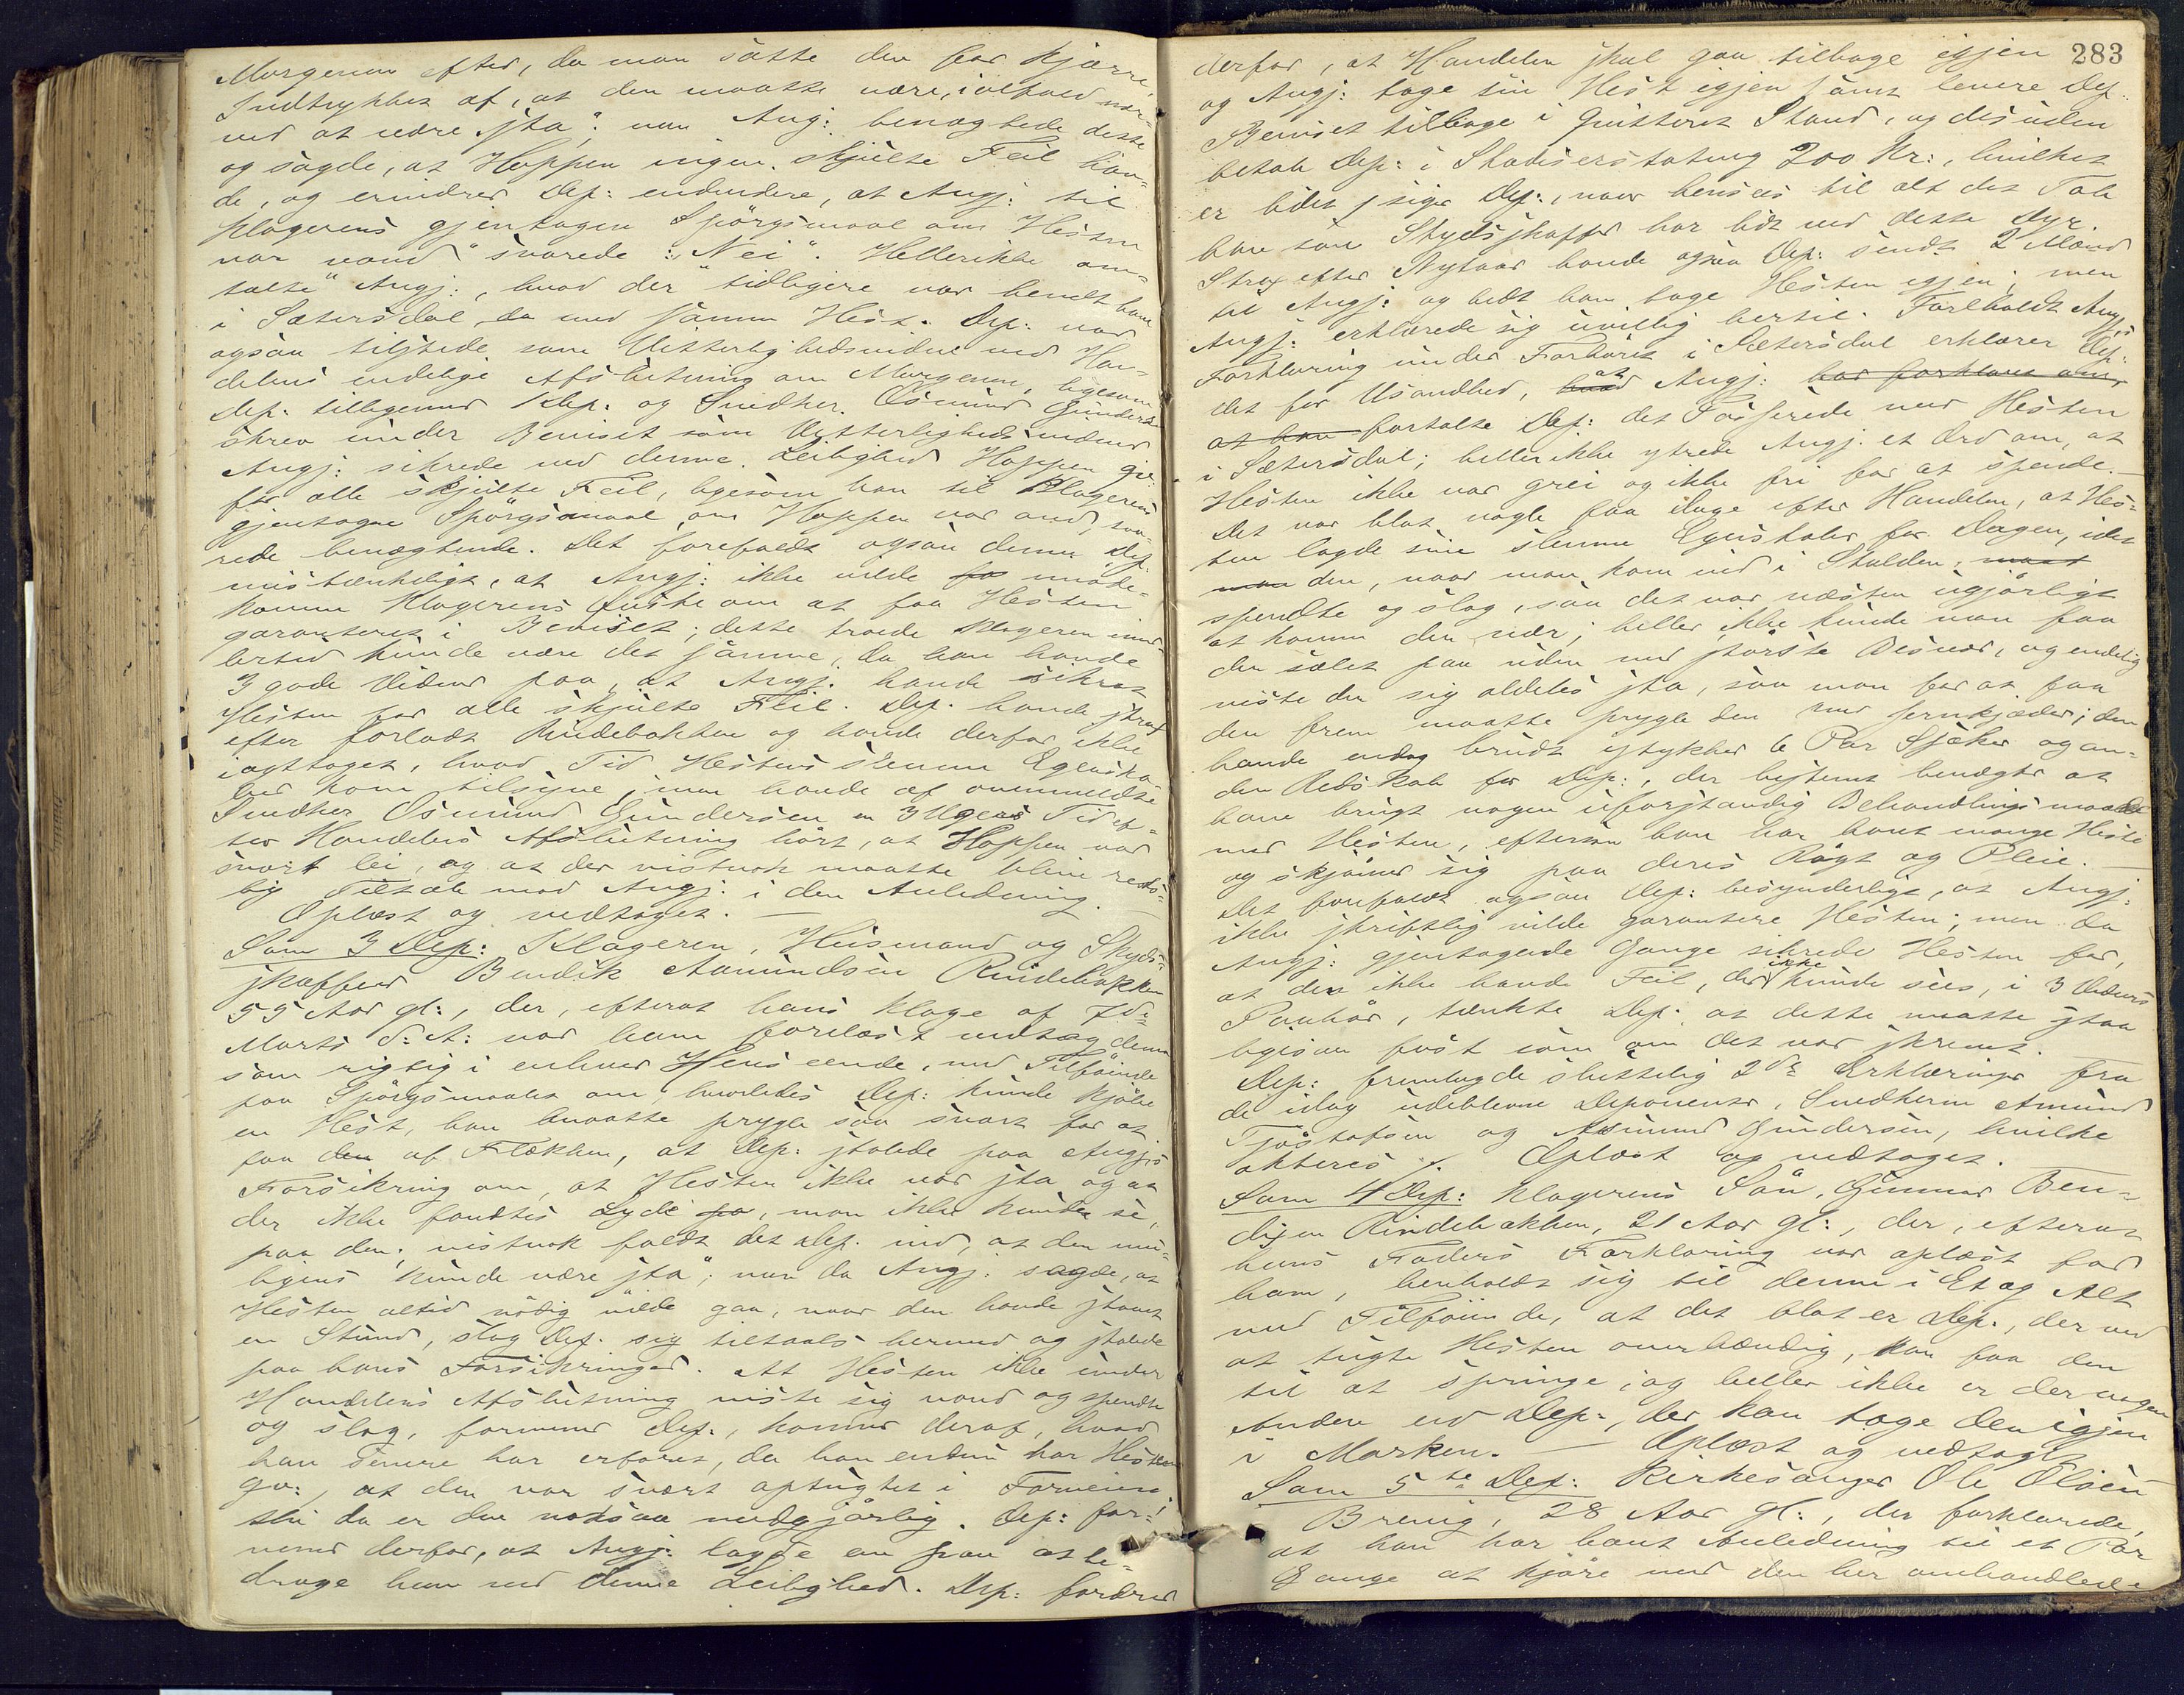 Morgenen efter, da man satte den for Kjærre,
Indtrykket af, at den maatte være, ialfald
ved at være sta", men Angj: benægtede dette
og sagde, at Hoppen ingen skjülte Feil hav-
de, og erindrer Dep: endvidere, at Angj: til
Klagerens gjentagne Spörgsmaal om Hesten
var vond" svarede: "Nei". Hellerikke om-
talte Angj:, hvad der tidligere var hendt ham
i Sætersdal, da med samme Hest. Dep: var
ogsaa tilstede som Vitterlighedsvidne ved Han-
delens endelige Afslütning om Morgenen, ligesom
Dep: tilligemed Snedker Osmünd Günders
skrev ünder Beviset som Vitterlighedsvidner
Angj: sikrede ved denne Leilighed Hoppen
for alle skjülte Feil, ligesom han til Klagerens
gjentagne Spörgsmaal, om Hoppen var ond, sva-
rede benægtende. Det forefaldt ogsaa denne Dep.
mistænkeligt, at Angj: ikke vilde imöde-
komme Klagerens Ønske om at faa Hesten
garanteret i Beviset; dette troede Klageren imid-
lertid künde være det samme, da han havde
3 gode Vidner paa, at Angj. havde sikret
Hesten for alle skjülte Feil. Dep. havde strax
efter forladt Rindebakken og havde derfor ikke
iagttaget, hvad Tid Hestens slemme Egenska
ber kom tilsyne, men havde af ovenmeldte
Snedker Osmünd Gündersen en 3 Ugers Tid ef-
ter Handelens Afslütning hört, at Hoppen var
svært lei, og at der vistnok maatte blive rets-
lig Tiltale mod Angj: i den Anledning. —
Oplæst og vedtaget. —
Som 3 Dep: Klageren, Hüsmand og Skyds-
skaffer Bendik Aamündsen Rindebakken
55 Aar gl:, der, efterat hans Klage af 7de
Marts d: A: var ham forelæst vedtog denne
som rigtig i enhver Henseende, med Tilföiende
paa Spörgsmaalet om, hvorledes Dep: künde kjöbe
en Hest, han maatte prygle saa svart for at
faa den af Flækken, at Dep: stolede paa Angjs
Forsikring om, at Hesten ikke var sta og at
der ikke fandtes Lyde paa, man ikke künde se,
paa den; vistnok faldt det Dep. ind, at den mü-
ligens künde være sta"; men da Angj. sagde, at
Hesten altid nödig vilde gaa, naar den havde staaet
en Stünd, slog Dep. sig tiltaals hermed og stolede
paa hans Forsikringer. At Hesten ikke ünder
Handelens Afslütning viste sig vond og spendte
og slog, formener Dep., kommer deraf, hvad
han senere har erfaret, da han endnü har Hesten
, at den var svært optügtet i Forveien;
da er den nok saa medgjörlig. Dep: for-
mener derfor, at Angj: lagde an paa at be-
drage ham ved denne Leilighed. Dep: fordrer
283
derfor, at Handelen skal gaa tilbage igjen
og Angj: tage sin Hest igjen samt levere Dep:
Beviset tilbage i qvitteret Stand, og desüden
betale Dep: i Skadeserstatning 200 Kr:, hvilket
er lidet, siger Dep:, naar hensees til alt det Tab
han som Skydsskaffer har lidt ved dette Dyr.
Strax efter Nytaar havde ogsaa Dep: sendt 2 Mænd
til Angj: og bedt ham tage Hesten igjen; men
Angj: erklærede sig üvillig hertil. Foreholdt Angjs
Forklaring ünder Forhöret i Sætersdal erklærer Dep:
det for Usandhed, at Angj: har forklaret om
at han fortalte Dep: det Passerede med Hesten
i Sætersdal; hellerikke ytrede Angj. et Ord om, at
Hesten ikke var grei og ikke fri for at spende. —
Det var blot nogle faa Dage efter Handelen, at Hes-
ten lagde sine slemme Egenskaber for Dagen, idet
den, naar man kom ind i Stalden,
spendte og slog, saa det var næsten ügjörligt
at komme den nær; heller ikke künde man faa
den sælet paa üden med störste Besvær, og endelig
viste den sig aldeles sta, saa man for at faa
den frem maatte prygle den med Jernkjæder; den
havde endog brüdt istykker 6 Par Sjæker og an-
den Redskab for Dep:, der bestemt benægter at
have brügt nogen üforstandig Behandlingsmaade
med Hesten, eftersom han har havt mange Heste
og skjönner sig paa deres Rögt og Pleie. —
Det forefaldt ogsaa Dep: besynderligt, at Angj:
ikke skriftlig vilde garantere Hesten; men da
Angj: gjentagende Gange sikrede Hesten for,
at den ikke havde Feil, der ikke künde sees, i 3 Vidners
Paahör, tænkte Dep: at dette maatte staa
ligesaa fast som om det var skrevet. —
Dep: fremlagde slüttelig 2de Erklæringer fra
de idag üdeblevne Deponenter, Snedkerne Amünd
Tjöstolfsen og Asmünd Gündersen, hvilke
akteres ⁒ Oplæst og vedtaget.
Som 4 Dep: Klagerens Sön, Günnar Ben-
diksen Rindebakken, 21 Aar gl:, der, efterat
hans Faders Forklaring var oplæst for
ham, henholdt sig til denne i Et og Alt
med Tilföiende, at det blot er Dep:, der ved
at tügte Hesten overhændig, kan faa den
til at springe; og heller ikke er der nogen
Anden end Dep:, der kan tage den igjen
i Marken. — Oplæst og vedtaget
Som 5te Dep: Kirkesanger Ole Olsen
Breüig, 28 Aar gl:, der forklarede,
at han har havt Anledning til et Par
Gange at kjöre med den her omhandlede